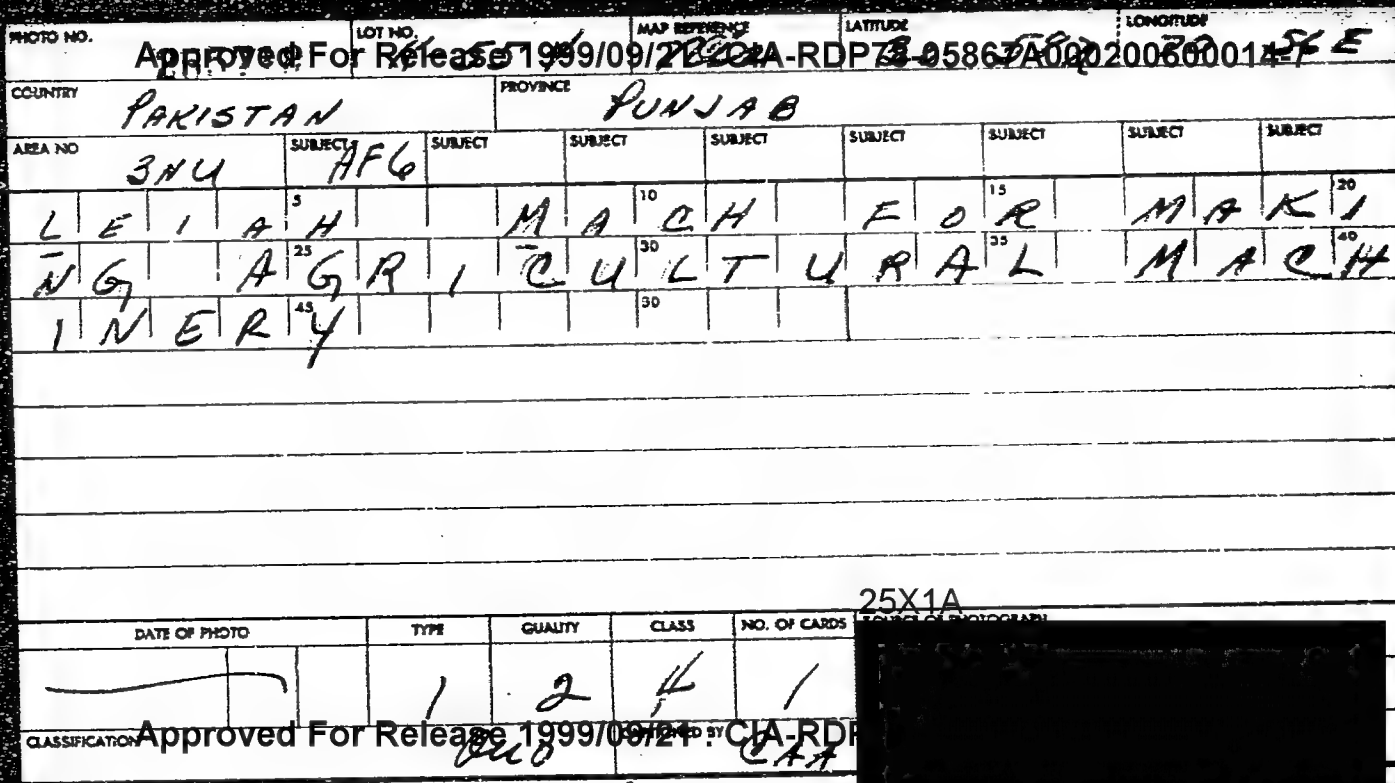 PHOTO NO. LOT NO. MAP REFERENCE LATITUDE LONGITUDE
Approved For Release 1999/09/21 : CIA-RDP78-05867A000200600014-7
56 E
COUNTRY PAKISTAN PROVINCE PUNJAB
AREA NO 3NU SUBJECT AF6 SUBJECT SUBJECT SUBJECT SUBJECT SUBJECT SUBJECT SUBJECT
5 10 15 20
LEIAH MACH FOR MAKI
25 30 35 40
NG AGRICULTURAL MACH
45 30
INERY
25X1A
DATE OF PHOTO TYPE QUALITY CLASS NO. OF CARDS SOURCE OF PHOTOGRAPH
1 2 4 1
CLASSIFICATION Approved For Release 1999/09/21 : CIA-RDP
OUO BY CAA